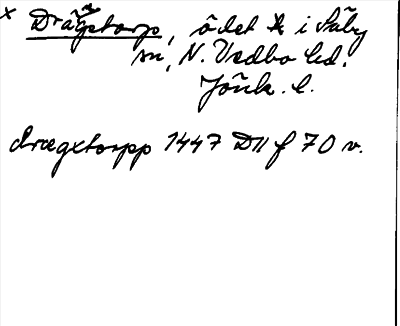 x Drägstorp, ödet i Säby
sn, N. Vedbo hd.
Jönk. l.
dragxtorpp 1447 D11 f 70 v.